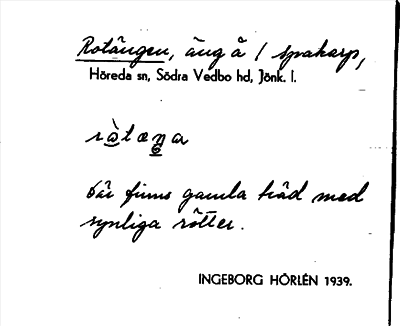 Rotängen, äng å / Spakarp,
Höreda sn, Södra Vedbo hd, Jönk. l.
Där finns gamla träd med
synliga rötter.
INGEBORG HÖRLÉN 1939.